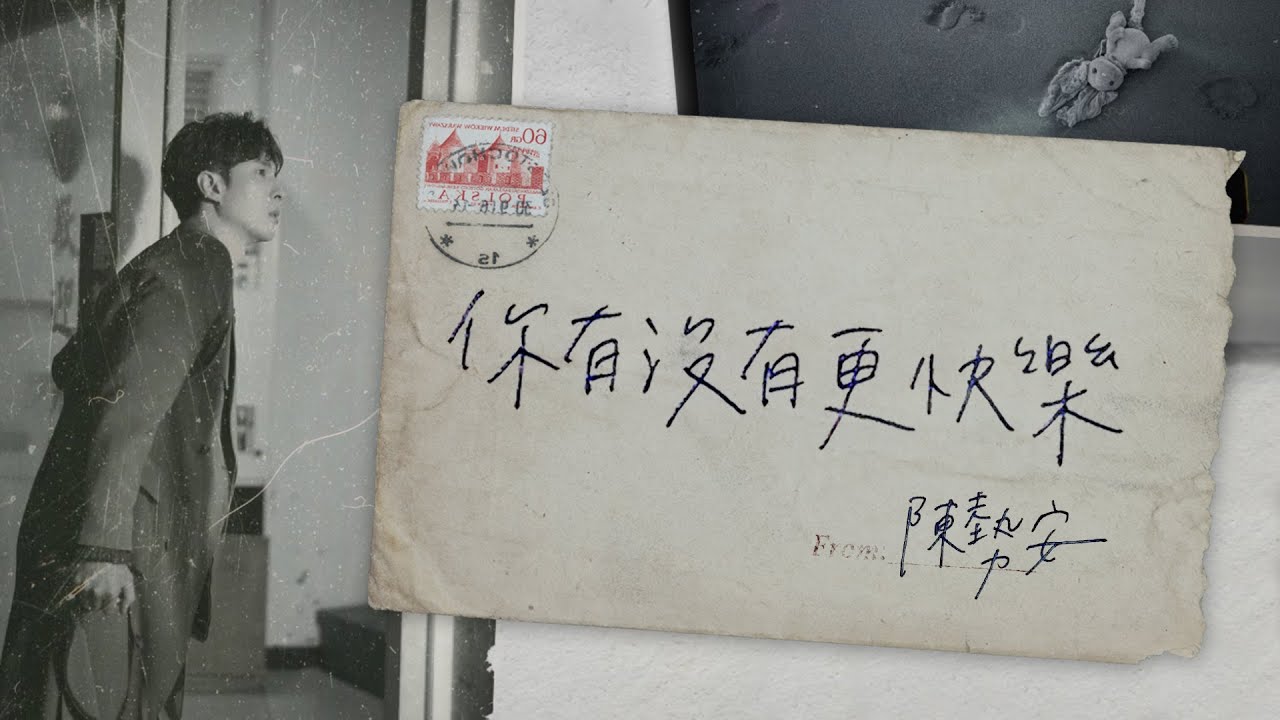 60
GR
POLSKA
1s
你有沒有更快樂
From: 陳勢安